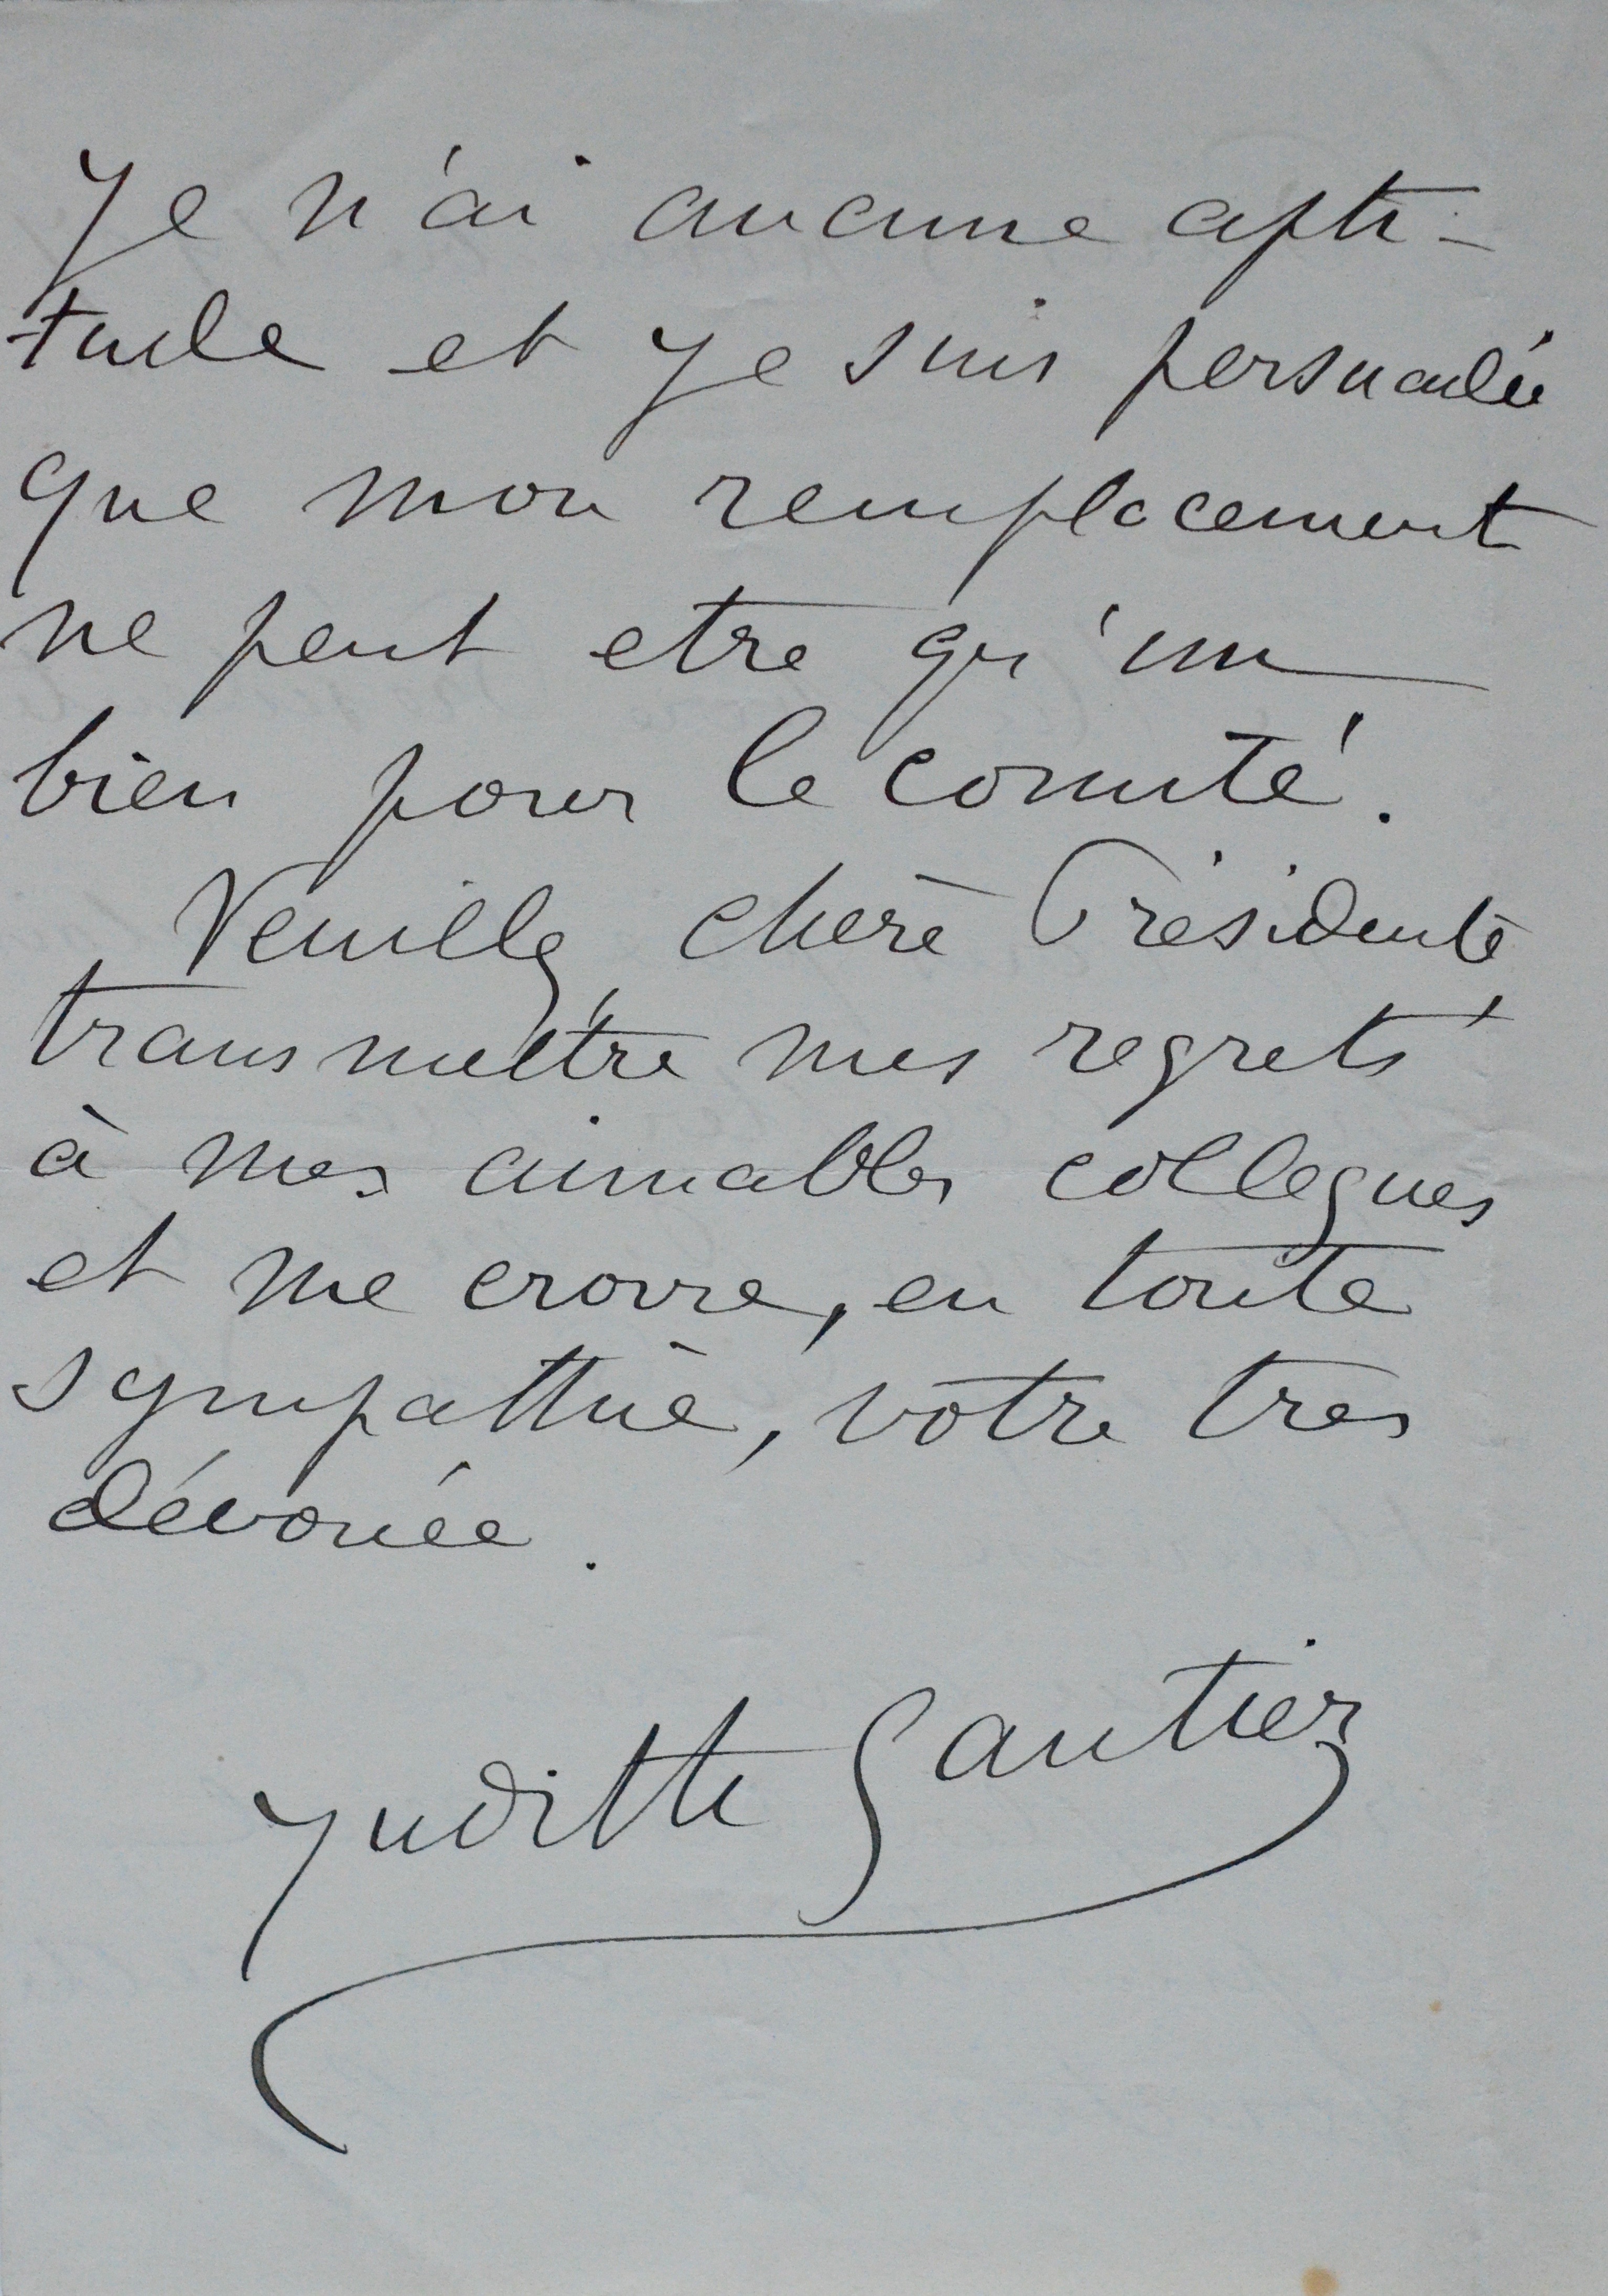 Je n'ai aucune apti-
tude et je suis persuadée
que mon remplacement
ne peut etre qu'un
bien pour le comité.
Veuillez, chère Présidente
transmettre mes regrets
à mes aimables collegues
et me croire, en toute
sympathie, votre tres
dévouée.
Judith Gautier